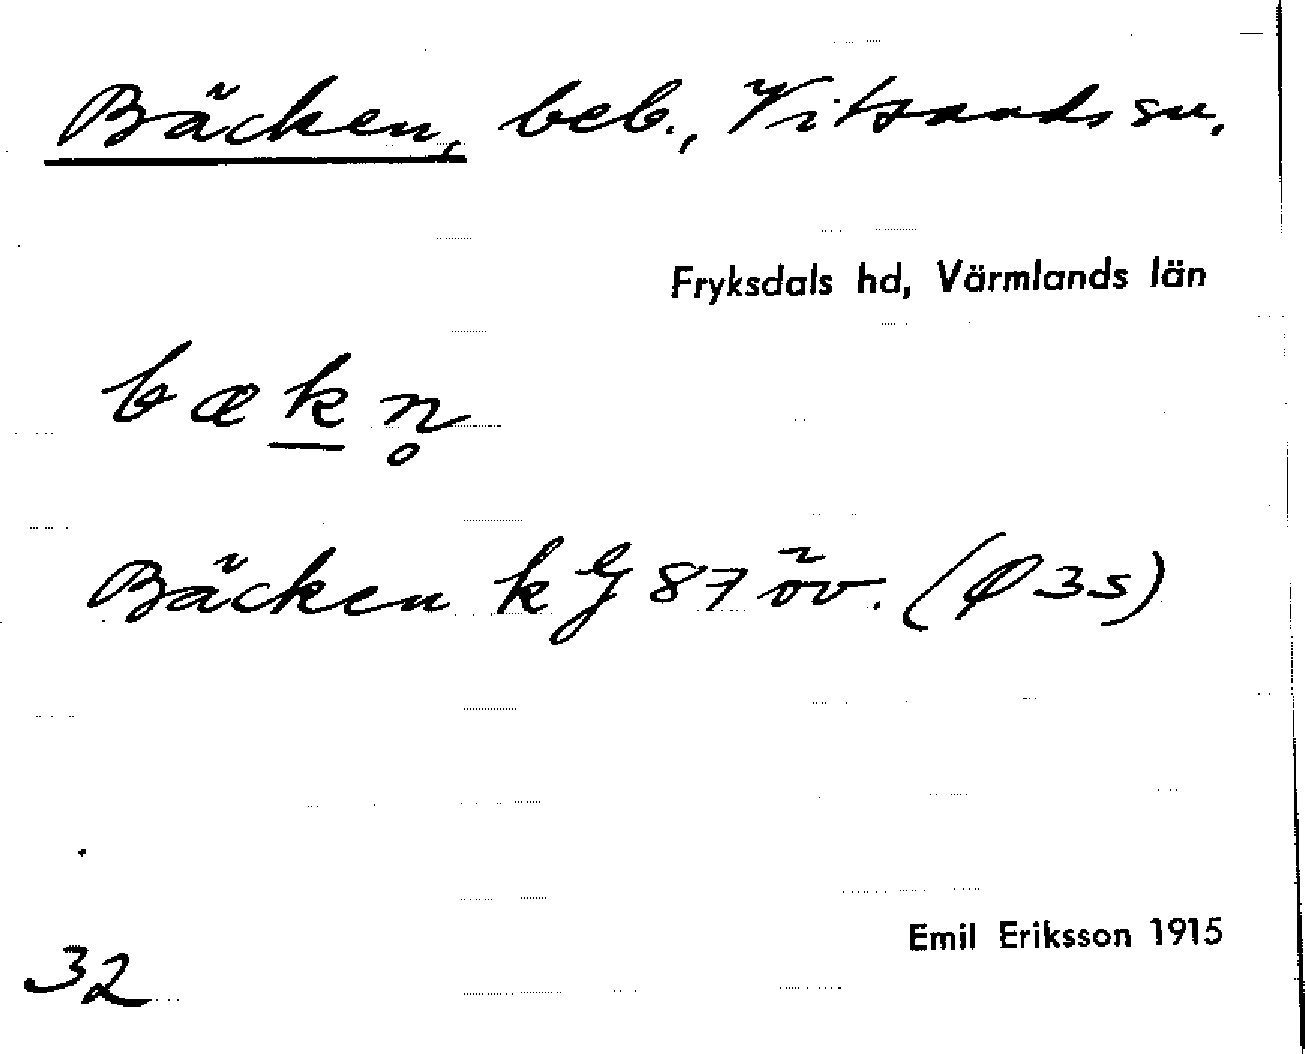 Bäcken, beb., Vitsands sn.
Fryksdals hd, Värmlands län
bæk̲n̥
Bäcken k 87 öv. (Ø 35)
Emil Eriksson 1915
32